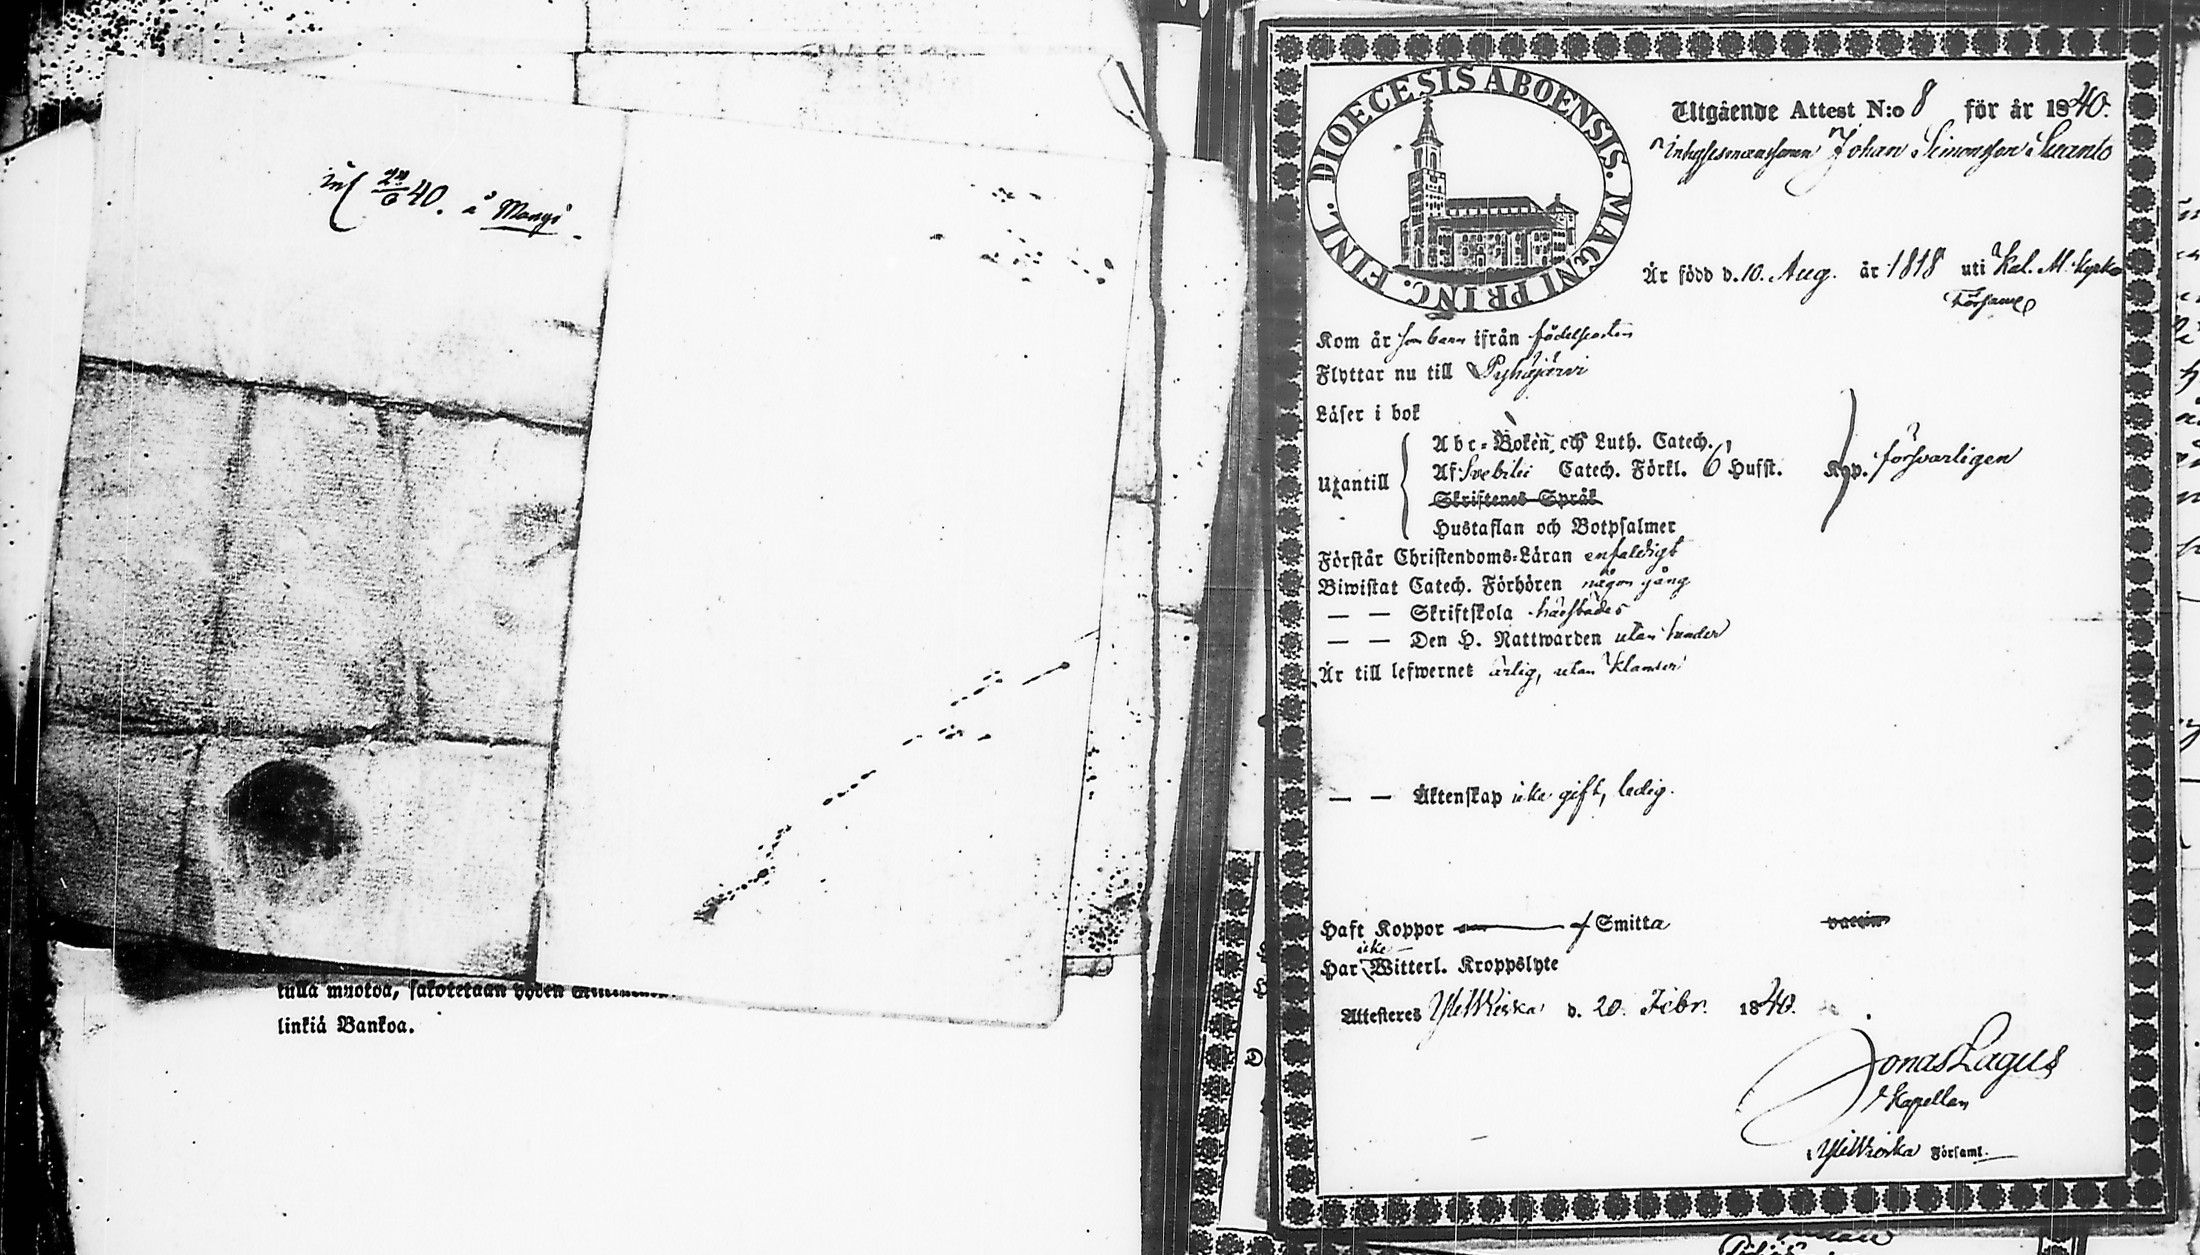 inl 24/6 40. å Mangs
tulla muotoa, sakotetaan yhden
linkiä Bankoa.
DIOECESIS ABOENSIS. MAGNI PRINC. FINL.
Utgående Attest N:o 8 för år 1840.
Inhysesmanssonen Johan Simonsson Suanto
Är född d. 10. Aug. år 1818 uti Kal. M. Kyrko
Församl
Kom år som barn ifrån födelseorten
Flyttar nu till Pyhäjärvi
Läser i bok
Utantill
Abc-Boken och Luth. Catech.
Af Svebilii Catech. Förkl. 6 Hufst. Kap. försvarligen
Skriftenes Språk
Hustaflan och Botpsalmer
Förstår Christendoms-Läran enfaldigt
Biwistat Catech. Förhören någon gång
— — Skriftskola härstädes
— — Den H. Nattwarden utan hinder
Är till lefwernet ärlig, utan klander
— — Äktenskap icke gift, ledig.
Haft Koppor — Smitta vaccin
Har icke Witterl. Kroppslyte
Attesteres YliWieska d. 20. Febr. 1840.
Jonas Lagus
Kapellan
i YliWieska Församl.